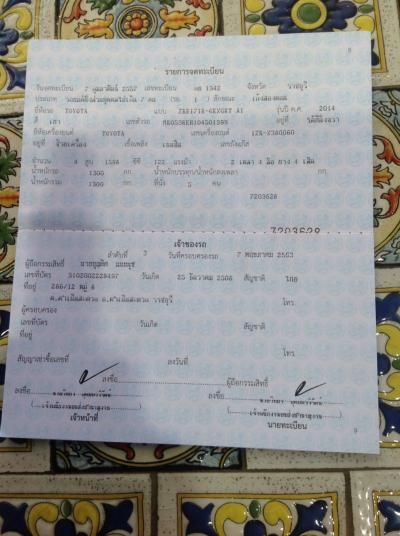 8
รายการจดทะเบียน
วันจดทะเบียน 7 กุมภาพันธ์ 2557 เลขทะเบียน 1342 จังหวัด ราชบุรี
ประเภท รถยนต์นั่งส่วนบุคคลไม่เกิน 7 คน (รย. 1 ) ลักษณะ เก๋งสองตอน
ยี่ห้อรถ TOYOTA แบบ รุ่นปี ค.ศ. 2014
สี เทา เลขตัวรถ อยู่ที่
ยี่ห้อเครื่องยนต์ TOYOTA เลขเครื่องยนต์
อยู่ที่ เชื้อเพลิง เลขถังแก๊ส
จำนวน 4 สูบ 1598 ซีซี 122 แรงม้า 2 เพลา 4 ล้อ ยาง 4 เส้น
น้ำหนักรถ 1300 กก. น้ำหนักบรรทุก/น้ำหนักลงเพลา กก.
น้ำหนักรวม 1300 กก. ที่นั่ง 5 คน
7203628
7203628
เจ้าของรถ
ลำดับที่ 3 วันที่ครอบครองรถ 7 พฤษภาคม 2563
ผู้ถือกรรมสิทธิ์
เลขที่บัตร 3102002229497 วันเกิด 25 ธันวาคม 2508 สัญชาติ ไทย
ที่อยู่ 286/12 หมู่ 4
ต.ดำเนินสะดวก อ.ดำเนินสะดวก ราชบุรี โทร.
ผู้ครอบครอง
เลขที่บัตร วันเกิด สัญชาติ
ที่อยู่
โทร.
สัญญาเช่าซื้อเลขที่ ลงวันที่
ลงชื่อ ผู้ถือกรรมสิทธิ์
ลงชื่อ ลงชื่อ
เจ้าหน้าที่ นายทะเบียน
9